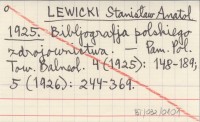 LEWICKI Stanisław Anatol
1925. Bibljografja polskiego
zdrojownictwa. — Pam. Pol.
Tow. Balneol. 4 (1925): 148-189;
5 (1926): 244-369.